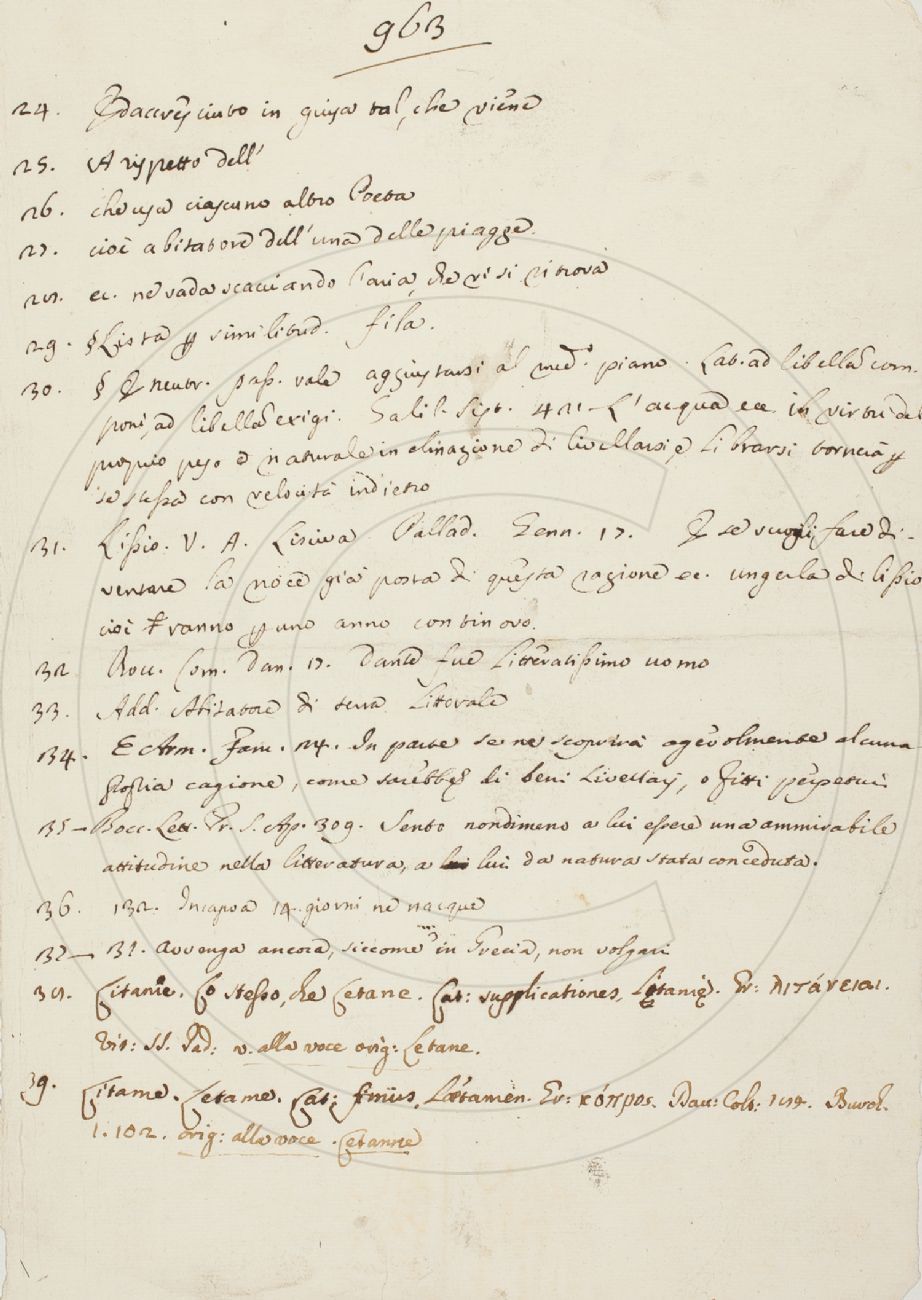 963
24. Ed accresciuto in guisa tal, che viene
25. A rispetto dell'
26. che usa ciascuno altro Poeta
27. cioè abitatore dell'una delle piagge.
28. ec. ne vada scacciando l'aria, che vi si ritrova
29. § Lista p similitud. fila.
30. § E neutr. pass. vale aggiustarsi al med.º piano. Lat. ad libellã com-
poni, ad libellã exigi. Galil. Sist. 421 - L'acqua ec. in virtù del
proprio peso e naturale inclinazione di livellarsi, e librarsi tornerà p
se stessa con velocità indietro
31. Lissio. V. A. Lisciva Pallad. Genn. 17. E se vuogli fare di-
ventare la noce già posta di questa ragione ec. ungerla di lissio
cioè ranno p uno anno continovo.
32 Bocc. Com. Dan. 17. Dante fue litteratissimo uomo
33. Add. Abitatore di terra Littorale
34. E Arm. Fam. 24. In parte se ne scoprirà agevolmente alcuna
cagione, come sarebbe di beni Livellarj, o fitti perpetui
35 - Bocc. Lett. Pr. S. Ap. 309. Sento nondimeno a lui essere una ammirabile
attitudine nella litteratura, a lui da natura stata conceduta.
36. 132. In capo a 14 giorni ne nacque
37 - 31. Avvenga ancora, siccome in Grecia, non volgari
38. Litanie. Lo stesso, che Letane. Lat: supplicationes, Litaniȩ. Gr: λιτάνειαι.
Vit: SS. Pad: v. alla voce orig: Letane.
39. Litame. Letame. Lat: fimus, Lætamen. Gr: κόπρος. Dav: Colt: 184. Burch.
1. 102. orig: alla voce. Letame